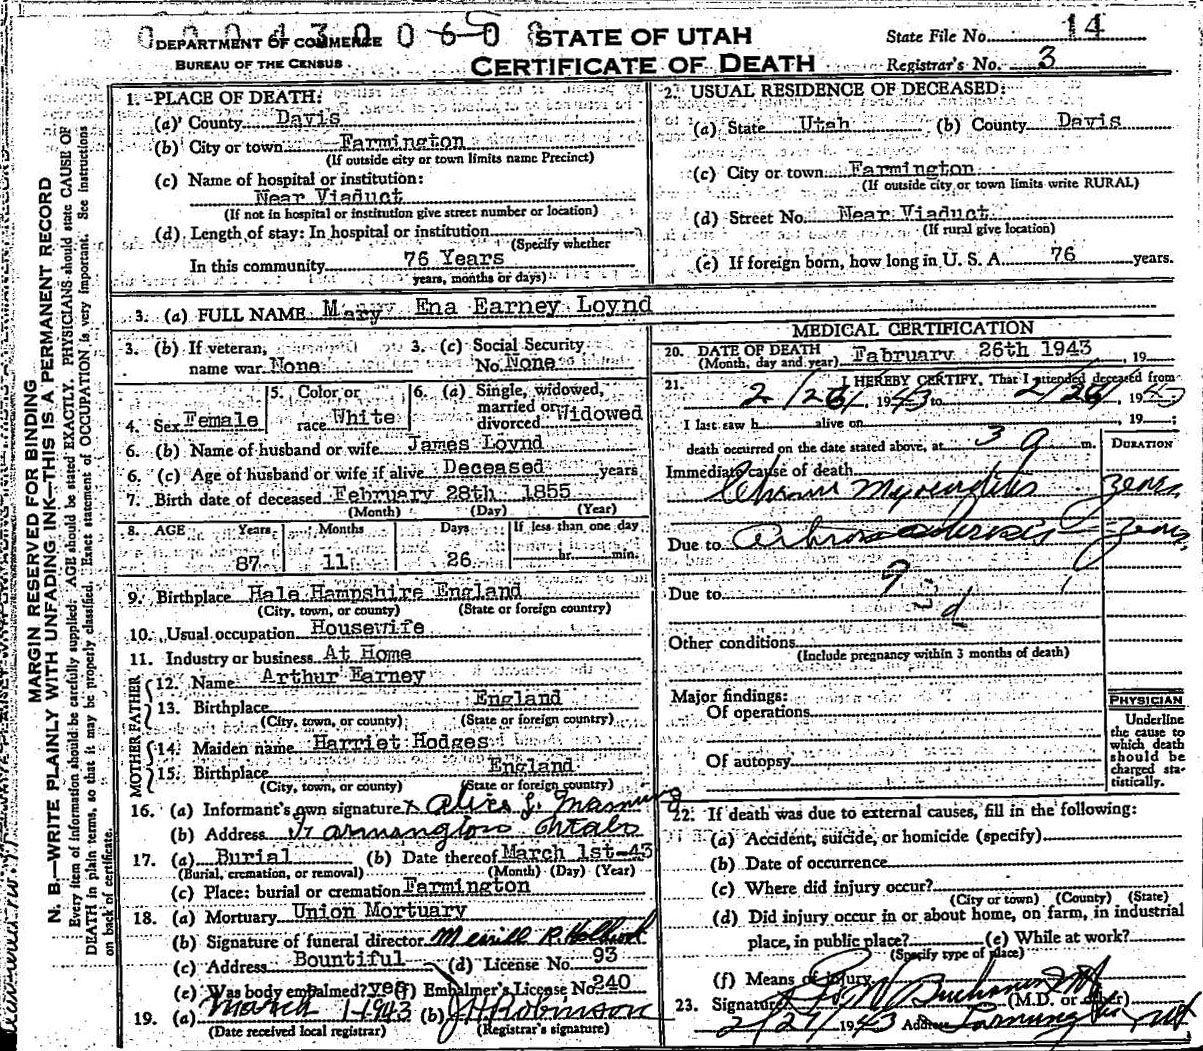 DEPARTMENT OF COMMERCE
BUREAU OF THE CENSUS
STATE OF UTAH
CERTIFICATE OF DEATH
State File No. 14
Registrar's No. 3
MARGIN RESERVED FOR BINDING
N. B.—WRITE PLAINLY WITH UNFADING INK—THIS IS A PERMANENT RECORD
Every item of information should be carefully supplied. AGE should be stated EXACTLY. PHYSICIANS should state CAUSE OF
DEATH in plain terms, so that it may be properly classified. Exact statement of OCCUPATION is very important. See instructions
on back of certificate.
1. PLACE OF DEATH:
(a) County Davis
(b) City or town Farmington
(If outside city or town limits name Precinct)
(c) Name of hospital or institution:
Near Viaduct
(If not in hospital or institution give street number or location)
(d) Length of stay: In hospital or institution
(Specify whether
In this community 76 Years
years, months or days)
2. USUAL RESIDENCE OF DECEASED:
(a) State Utah (b) County Davis
(c) City or town Farmington
(If outside city or town limits write RURAL)
(d) Street No. Near Viaduct
(If rural give location)
(e) If foreign born, how long in U. S. A. 76 years.
3. (a) FULL NAME Mary Ena Earney Loynd
3. (b) If veteran, 3. (c) Social Security
name war None No. None
4. Sex Female 5. Color or race White 6. (a) Single, widowed, married or divorced Widowed
6. (b) Name of husband or wife James Loynd
6. (c) Age of husband or wife if alive Deceased years
7. Birth date of deceased February 28th 1855
(Month) (Day) (Year)
8. AGE Years Months Days If less than one day
87 11 26 hr. min.
9. Birthplace Hale Hampshire England
(City, town, or county) (State or foreign country)
10. Usual occupation Housewife
11. Industry or business At Home
FATHER
12. Name Arthur Earney
13. Birthplace England
(City, town, or county) (State or foreign country)
MOTHER
14. Maiden name Harriet Hodges
15. Birthplace England
(City, town, or county) (State or foreign country)
16. (a) Informant's own signature x Alice L. Manning
(b) Address Farmington Utah
17. (a) Burial (b) Date thereof March 1st-43
(Burial, cremation, or removal) (Month) (Day) (Year)
(c) Place: burial or cremation Farmington
18. (a) Mortuary Union Mortuary
(b) Signature of funeral director Merrill R. Holbrook
(c) Address Bountiful (d) License No. 93
(e) Was body embalmed? yes (f) Embalmer's License No. 240
19. (a) March 1-1943 (b) J H Robinson
(Date received local registrar) (Registrar's signature)
MEDICAL CERTIFICATION
20. DATE OF DEATH February 26th 1943, 19
(Month, day and year)
21. I HEREBY CERTIFY, That I attended deceased from
2/26/ 1943 to 2/26/, 1943
I last saw h alive on , 19 ;
death occurred on the date stated above, at 3 a m.
DURATION
Immediate cause of death
Chronic Myocarditis years
Due to Arteriosclerosis years
Due to
Other conditions
(Include pregnancy within 3 months of death)
Major findings:
Of operations
Of autopsy
PHYSICIAN
Underline
the cause to
which death
should be
charged sta-
tistically.
22. If death was due to external causes, fill in the following:
(a) Accident, suicide, or homicide (specify)
(b) Date of occurrence
(c) Where did injury occur?
(City or town) (County) (State)
(d) Did injury occur in or about home, on farm, in industrial
place, in public place? (e) While at work?
(Specify type of place)
(f) Means of injury
23. Signature Buchanan MD (M.D. or other)
2/27/1943 Address Farmington Ut